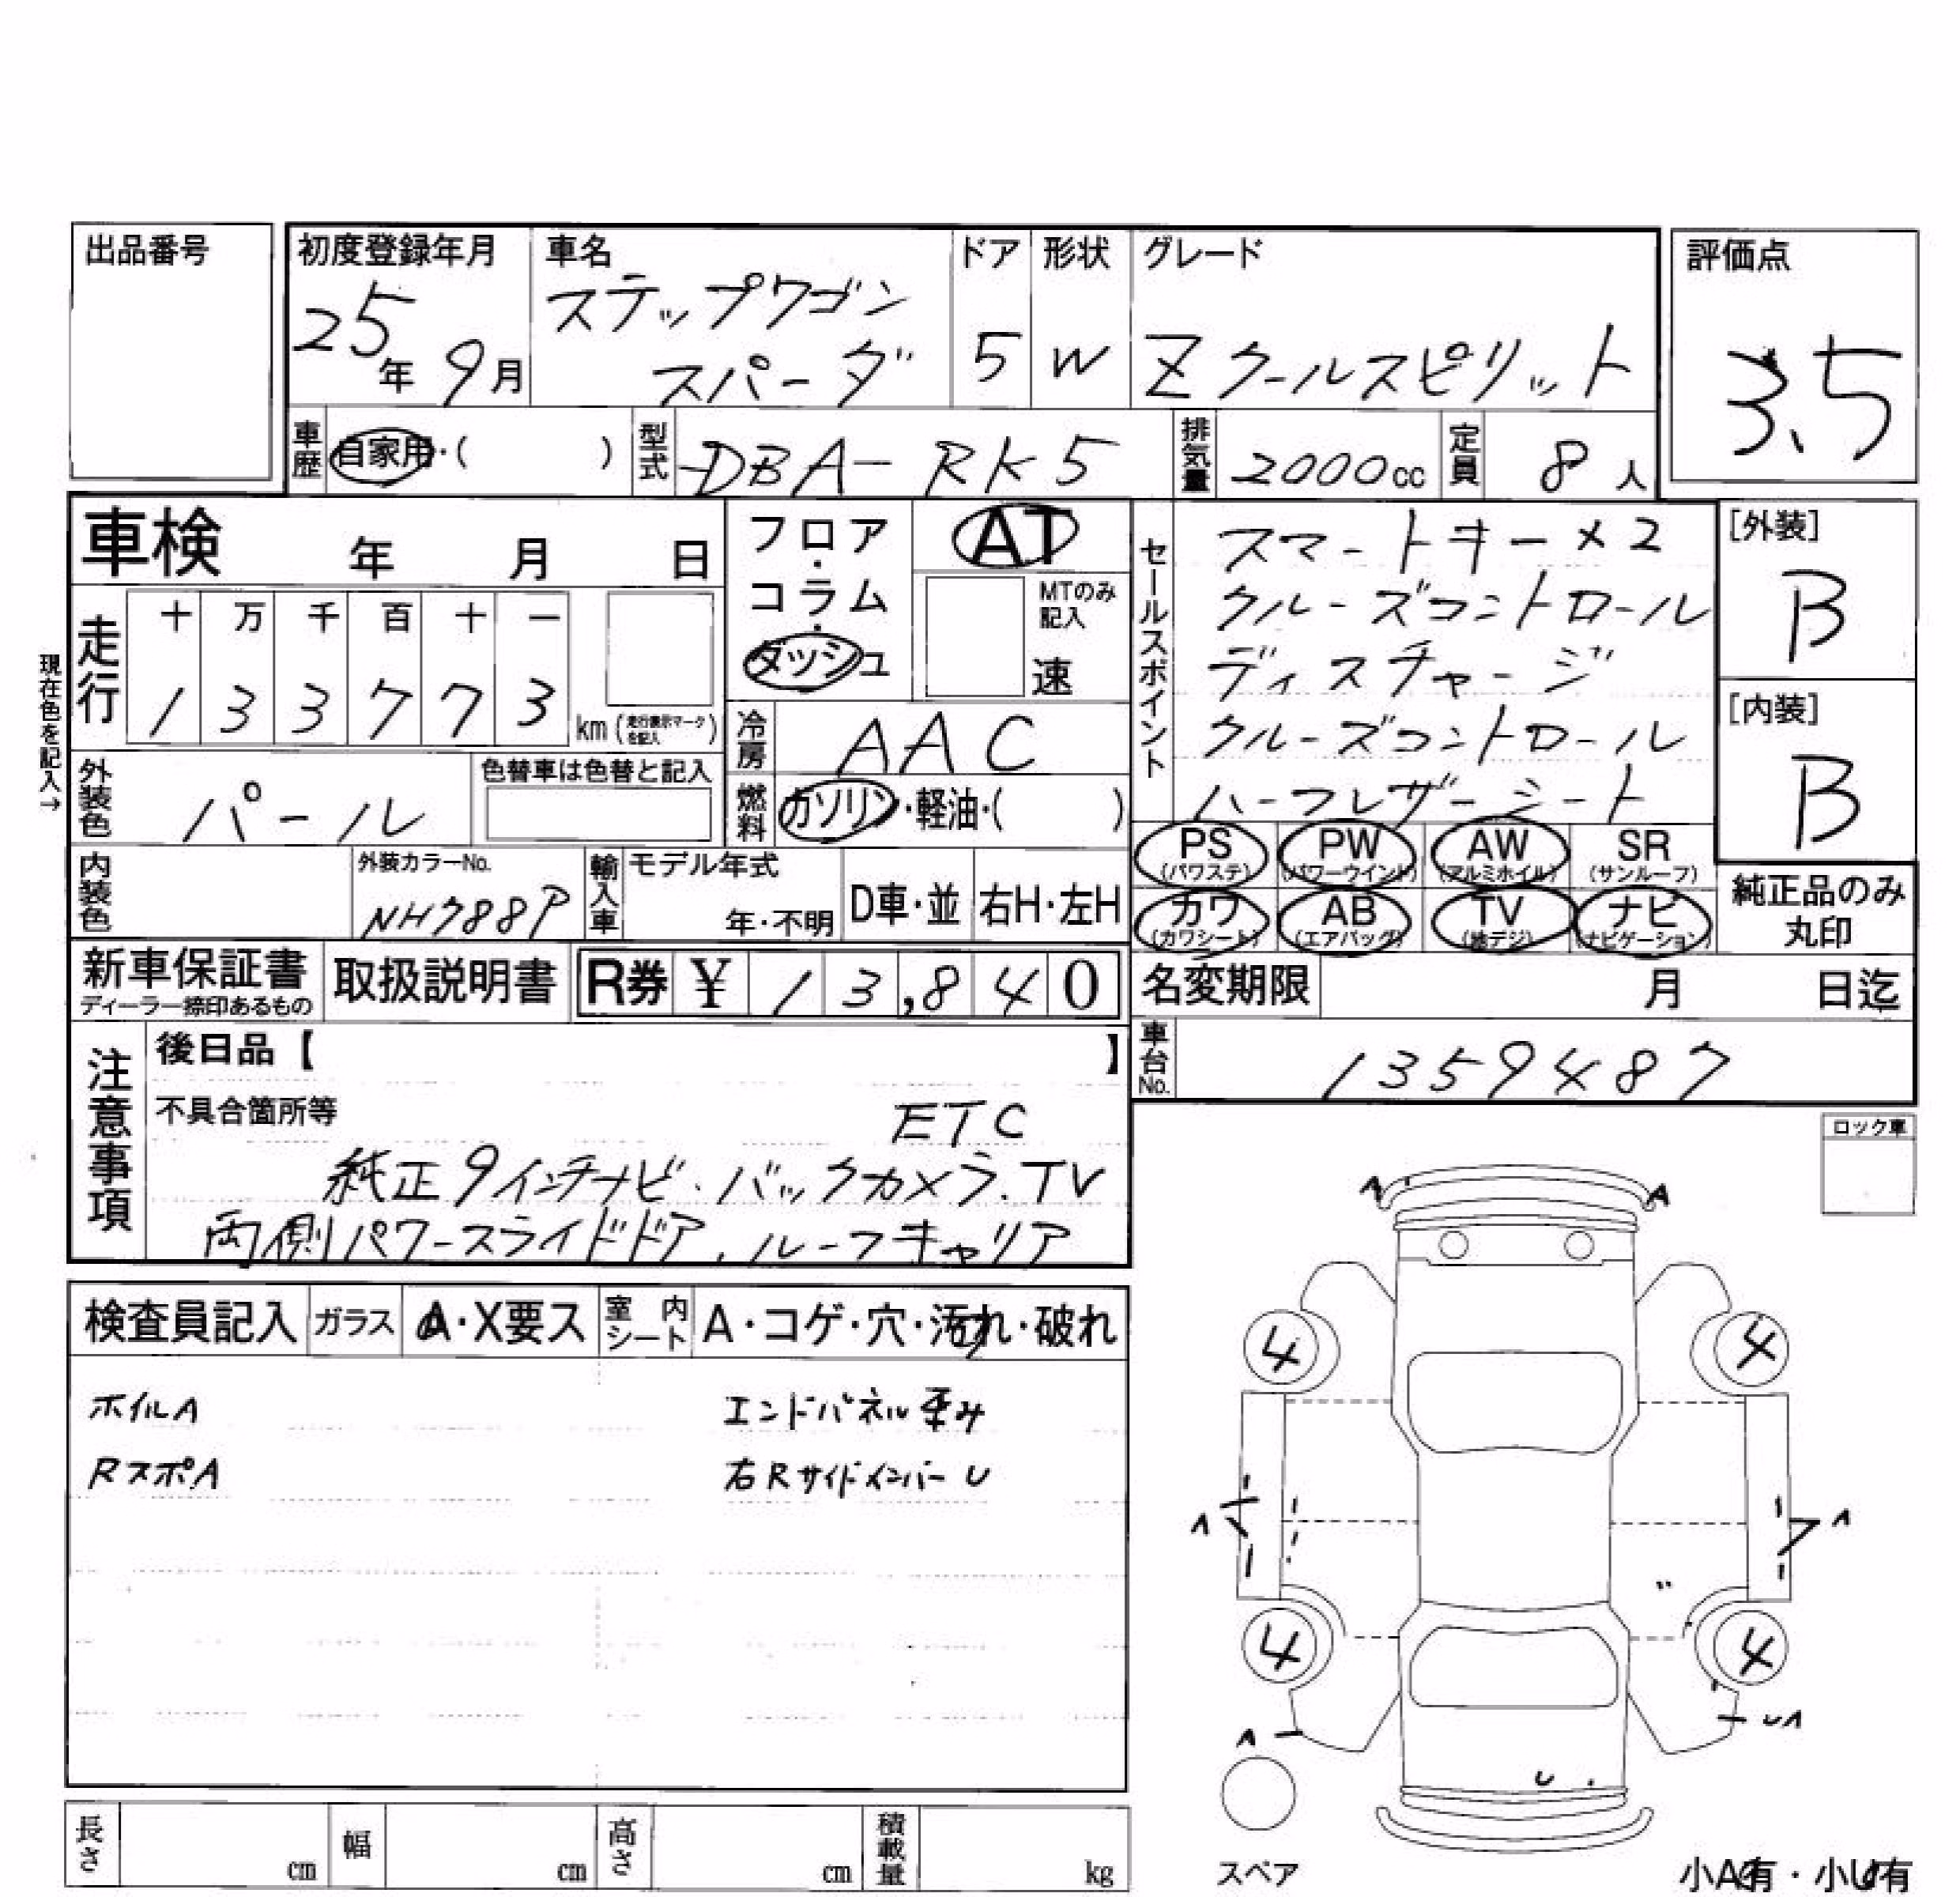 出品番号
初度登録年月 車名 ドア 形状 グレード 評価点
25年 9月 ステップワゴン スパーダ 5 W Zクールスピリット 3.5
車歴 自家用・( ) 型式 DBA-RK5 排気量 2000cc 定員 8人
車検 年 月 日
フロア・コラム・ダッシュ
AT
MTのみ記入
速
セールスポイント
スマートキー×2
クルーズコントロール
ディスチャージ
クルーズコントロール
ハーフレザーシート
[外装]
B
[内装]
B
現在色を記入→
走行 十 万 千 百 十 一
1 3 3 7 7 3 km (走行表示マークを記入)
冷房 AAC
外装色 パール 色替車は色替と記入
燃料 ガソリン・軽油・( )
PS (パワステ) PW (パワーウインド) AW (アルミホイル) SR (サンルーフ)
カワ (カワシート) AB (エアバッグ) TV (地デジ) ナビ (ナビゲーション)
純正品のみ丸印
内装色 外装カラーNo. NH788P 輸入車 モデル年式 年・不明 D車・並 右H・左H
新車保証書 ディーラー捺印あるもの 取扱説明書 R券 ¥ 13,840
名変期限 月 日迄
車台No. 1359487
注意事項
後日品【 】
不具合箇所等
ETC
純正9インチナビ.バックカメラ.TV
両側パワースライドドア.ルーフキャリア
ロック車
検査員記入 ガラス A・X要ス 室内シート A・コゲ・穴・汚れ・破れ
ホイルA エンドパネル歪み
RスポA 右Rサイドメンバー U
A A
4 4
A A
4 4
A UA
U
スペア
小A有・小U有
長さ cm 幅 cm 高さ cm 積載量 kg